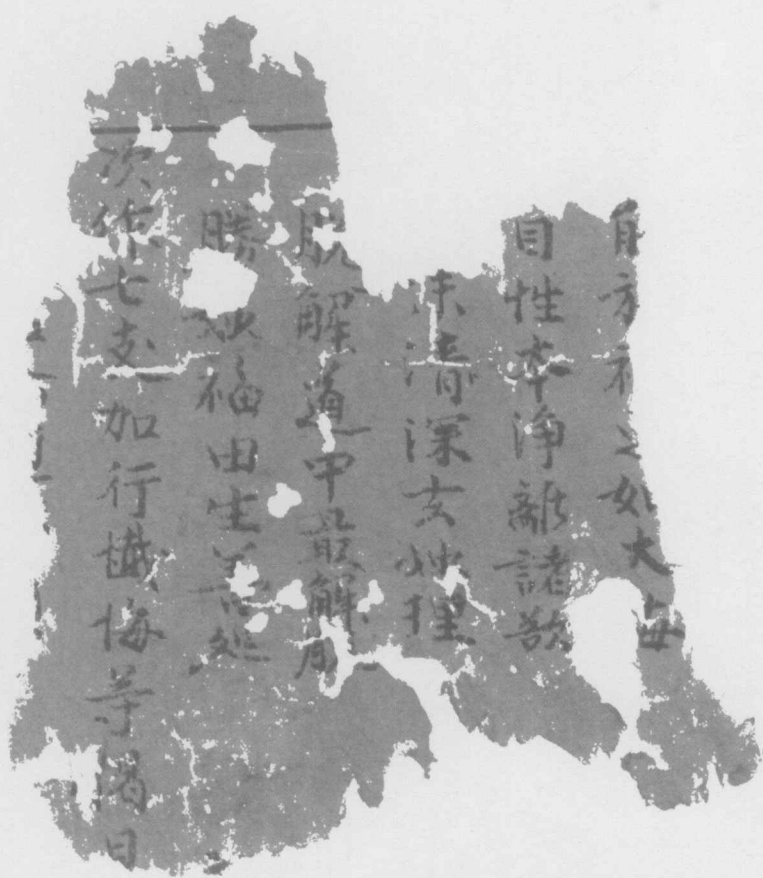 如大海
自性本淨離諸欲
清深玄妙理
脫解道中最解脫
勝妙福田生善處
次作七支加行懺悔等偈曰